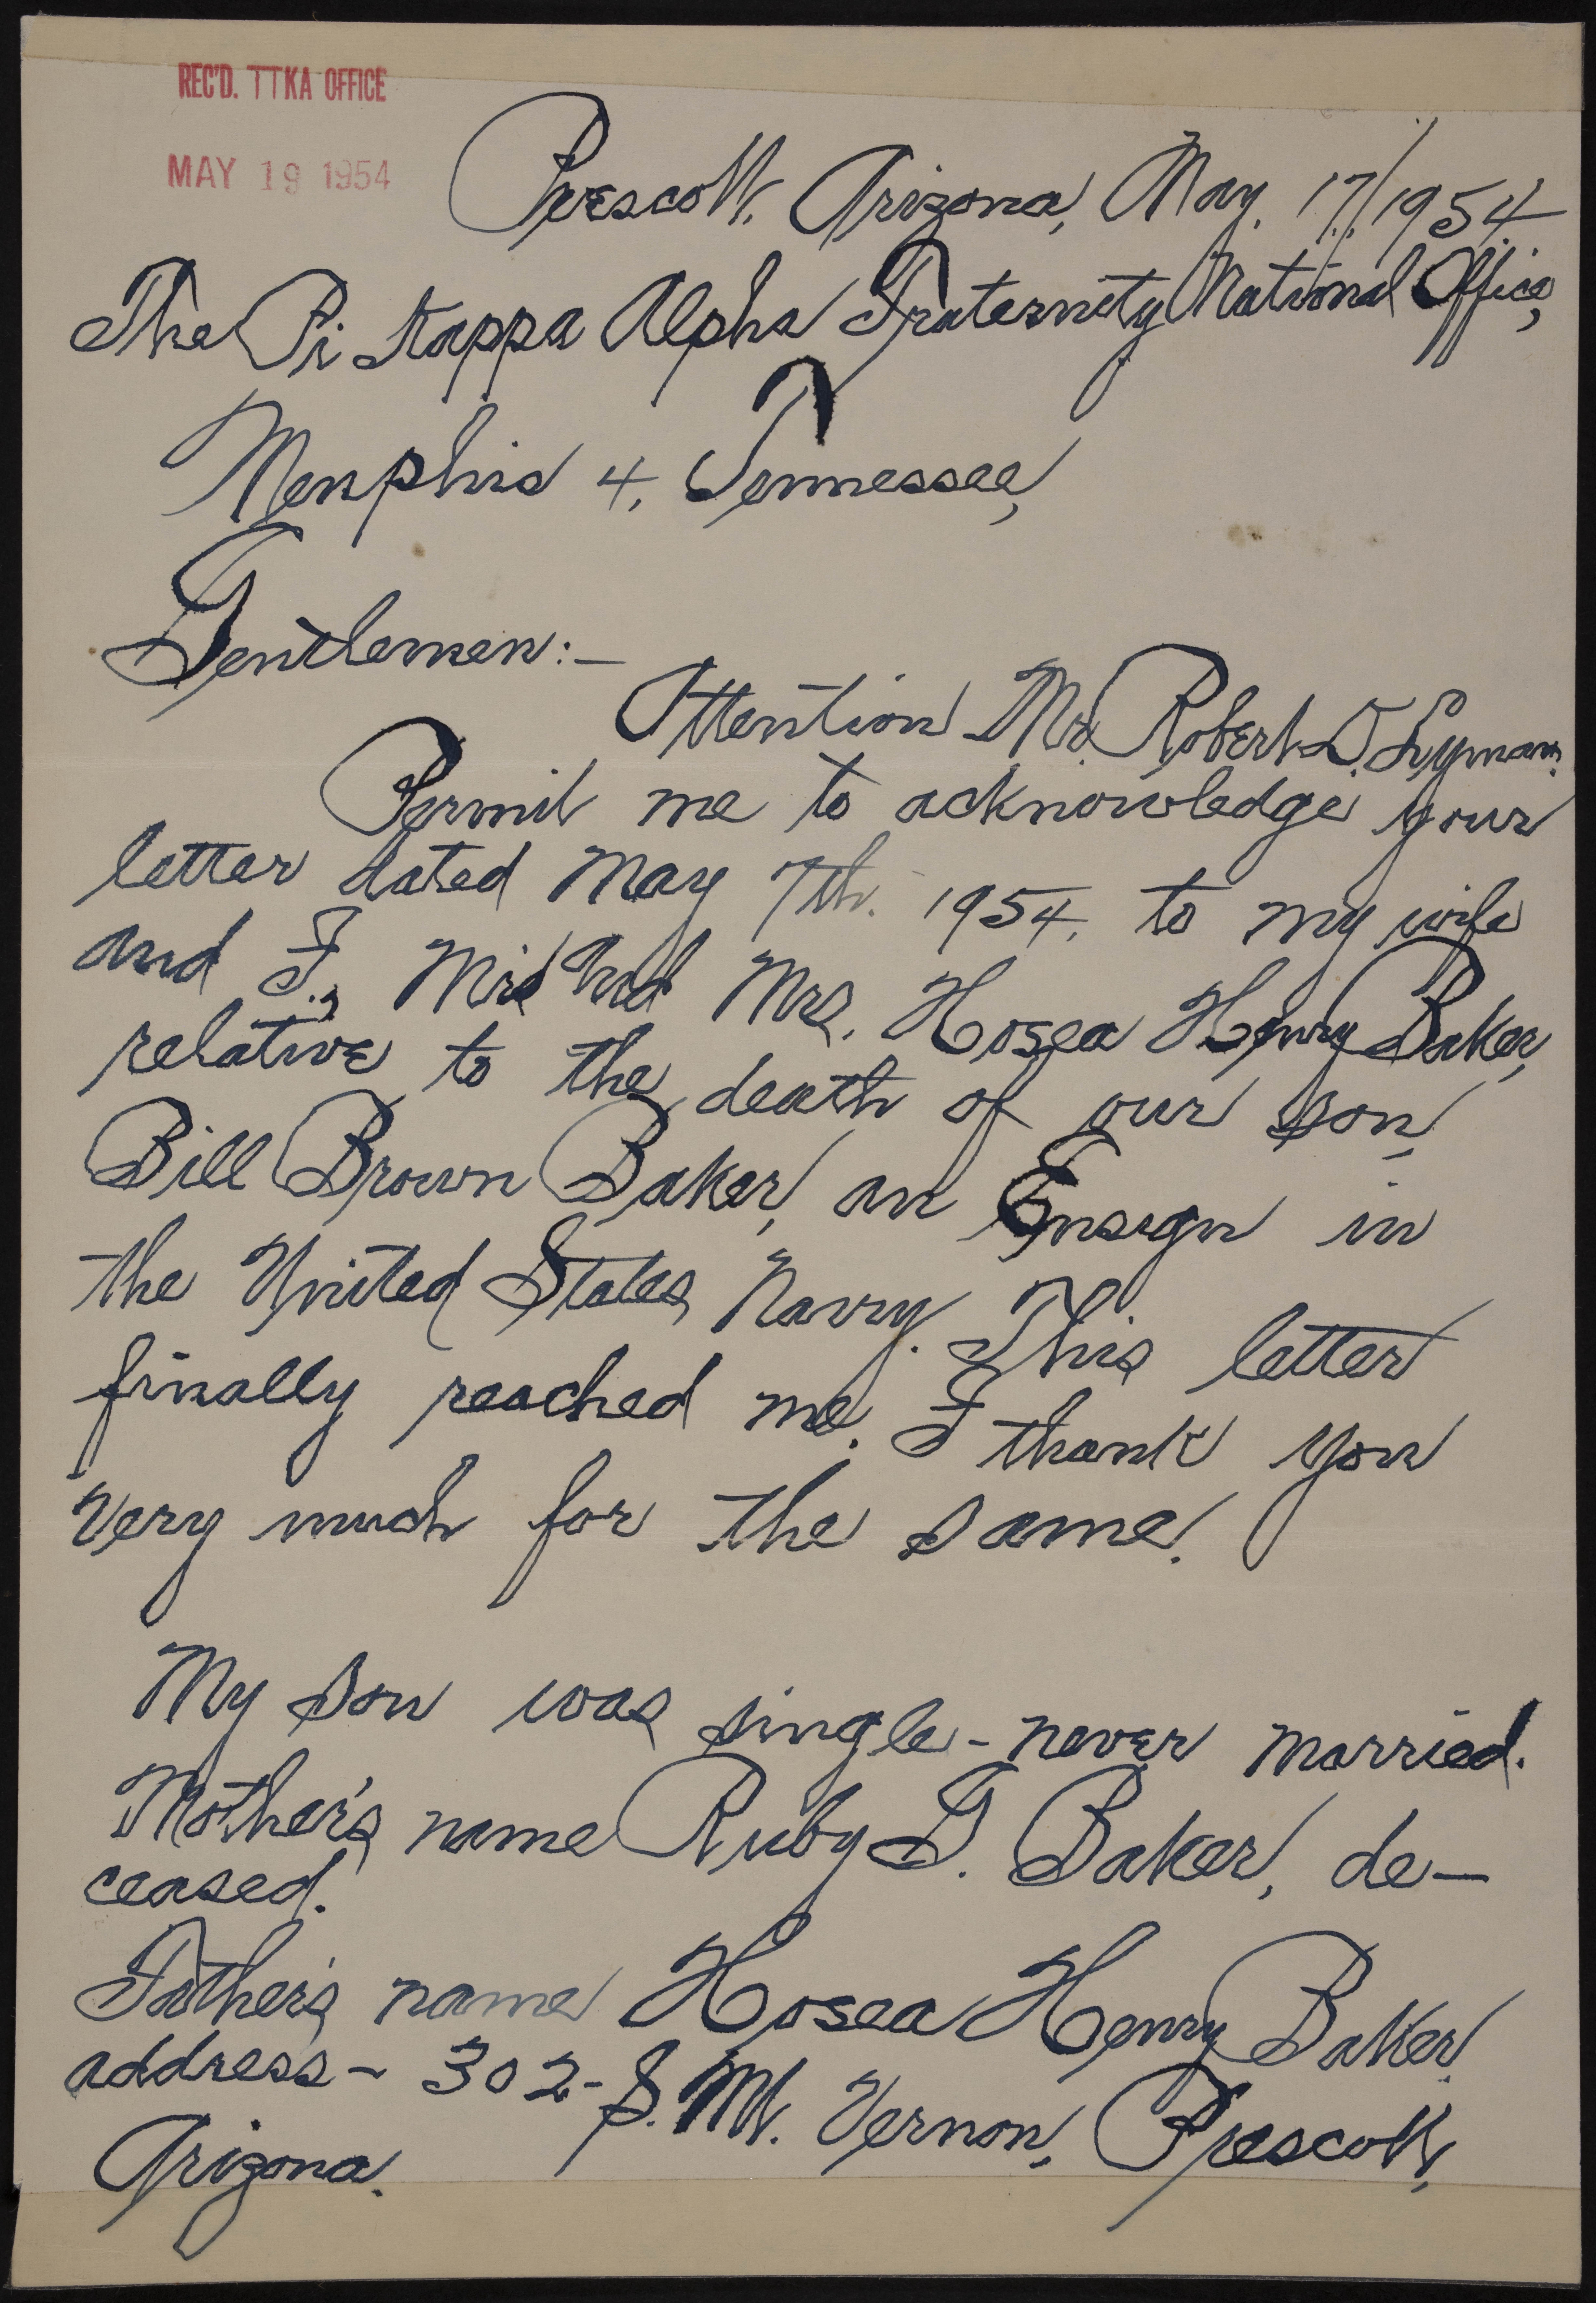 REC'D. TTKA OFFICE
MAY 19 1954
Prescott, Arizona, May. 17/1954
The Pi Kappa Alpha Fraternity National Office,
Memphis 4, Tennessee,
Gentlemen:-
Attention Mr. Robert D. Lynn
Permit me to acknowledge your
letter dated May 7th. 1954, to my wife
and I, Mr. and Mrs. Hosea Henry Baker,
relative to the death of our son,
Bill Brown Baker, an Ensign in
the United States Navy. This letter
finally reached me. I thank you
very much for the same.
My son was single - never married.
Mother's name Ruby G. Baker, de-
ceased.
Father's name Hosea Henry Baker,
address - 302 - S. Mt. Vernon, Prescott,
Arizona.